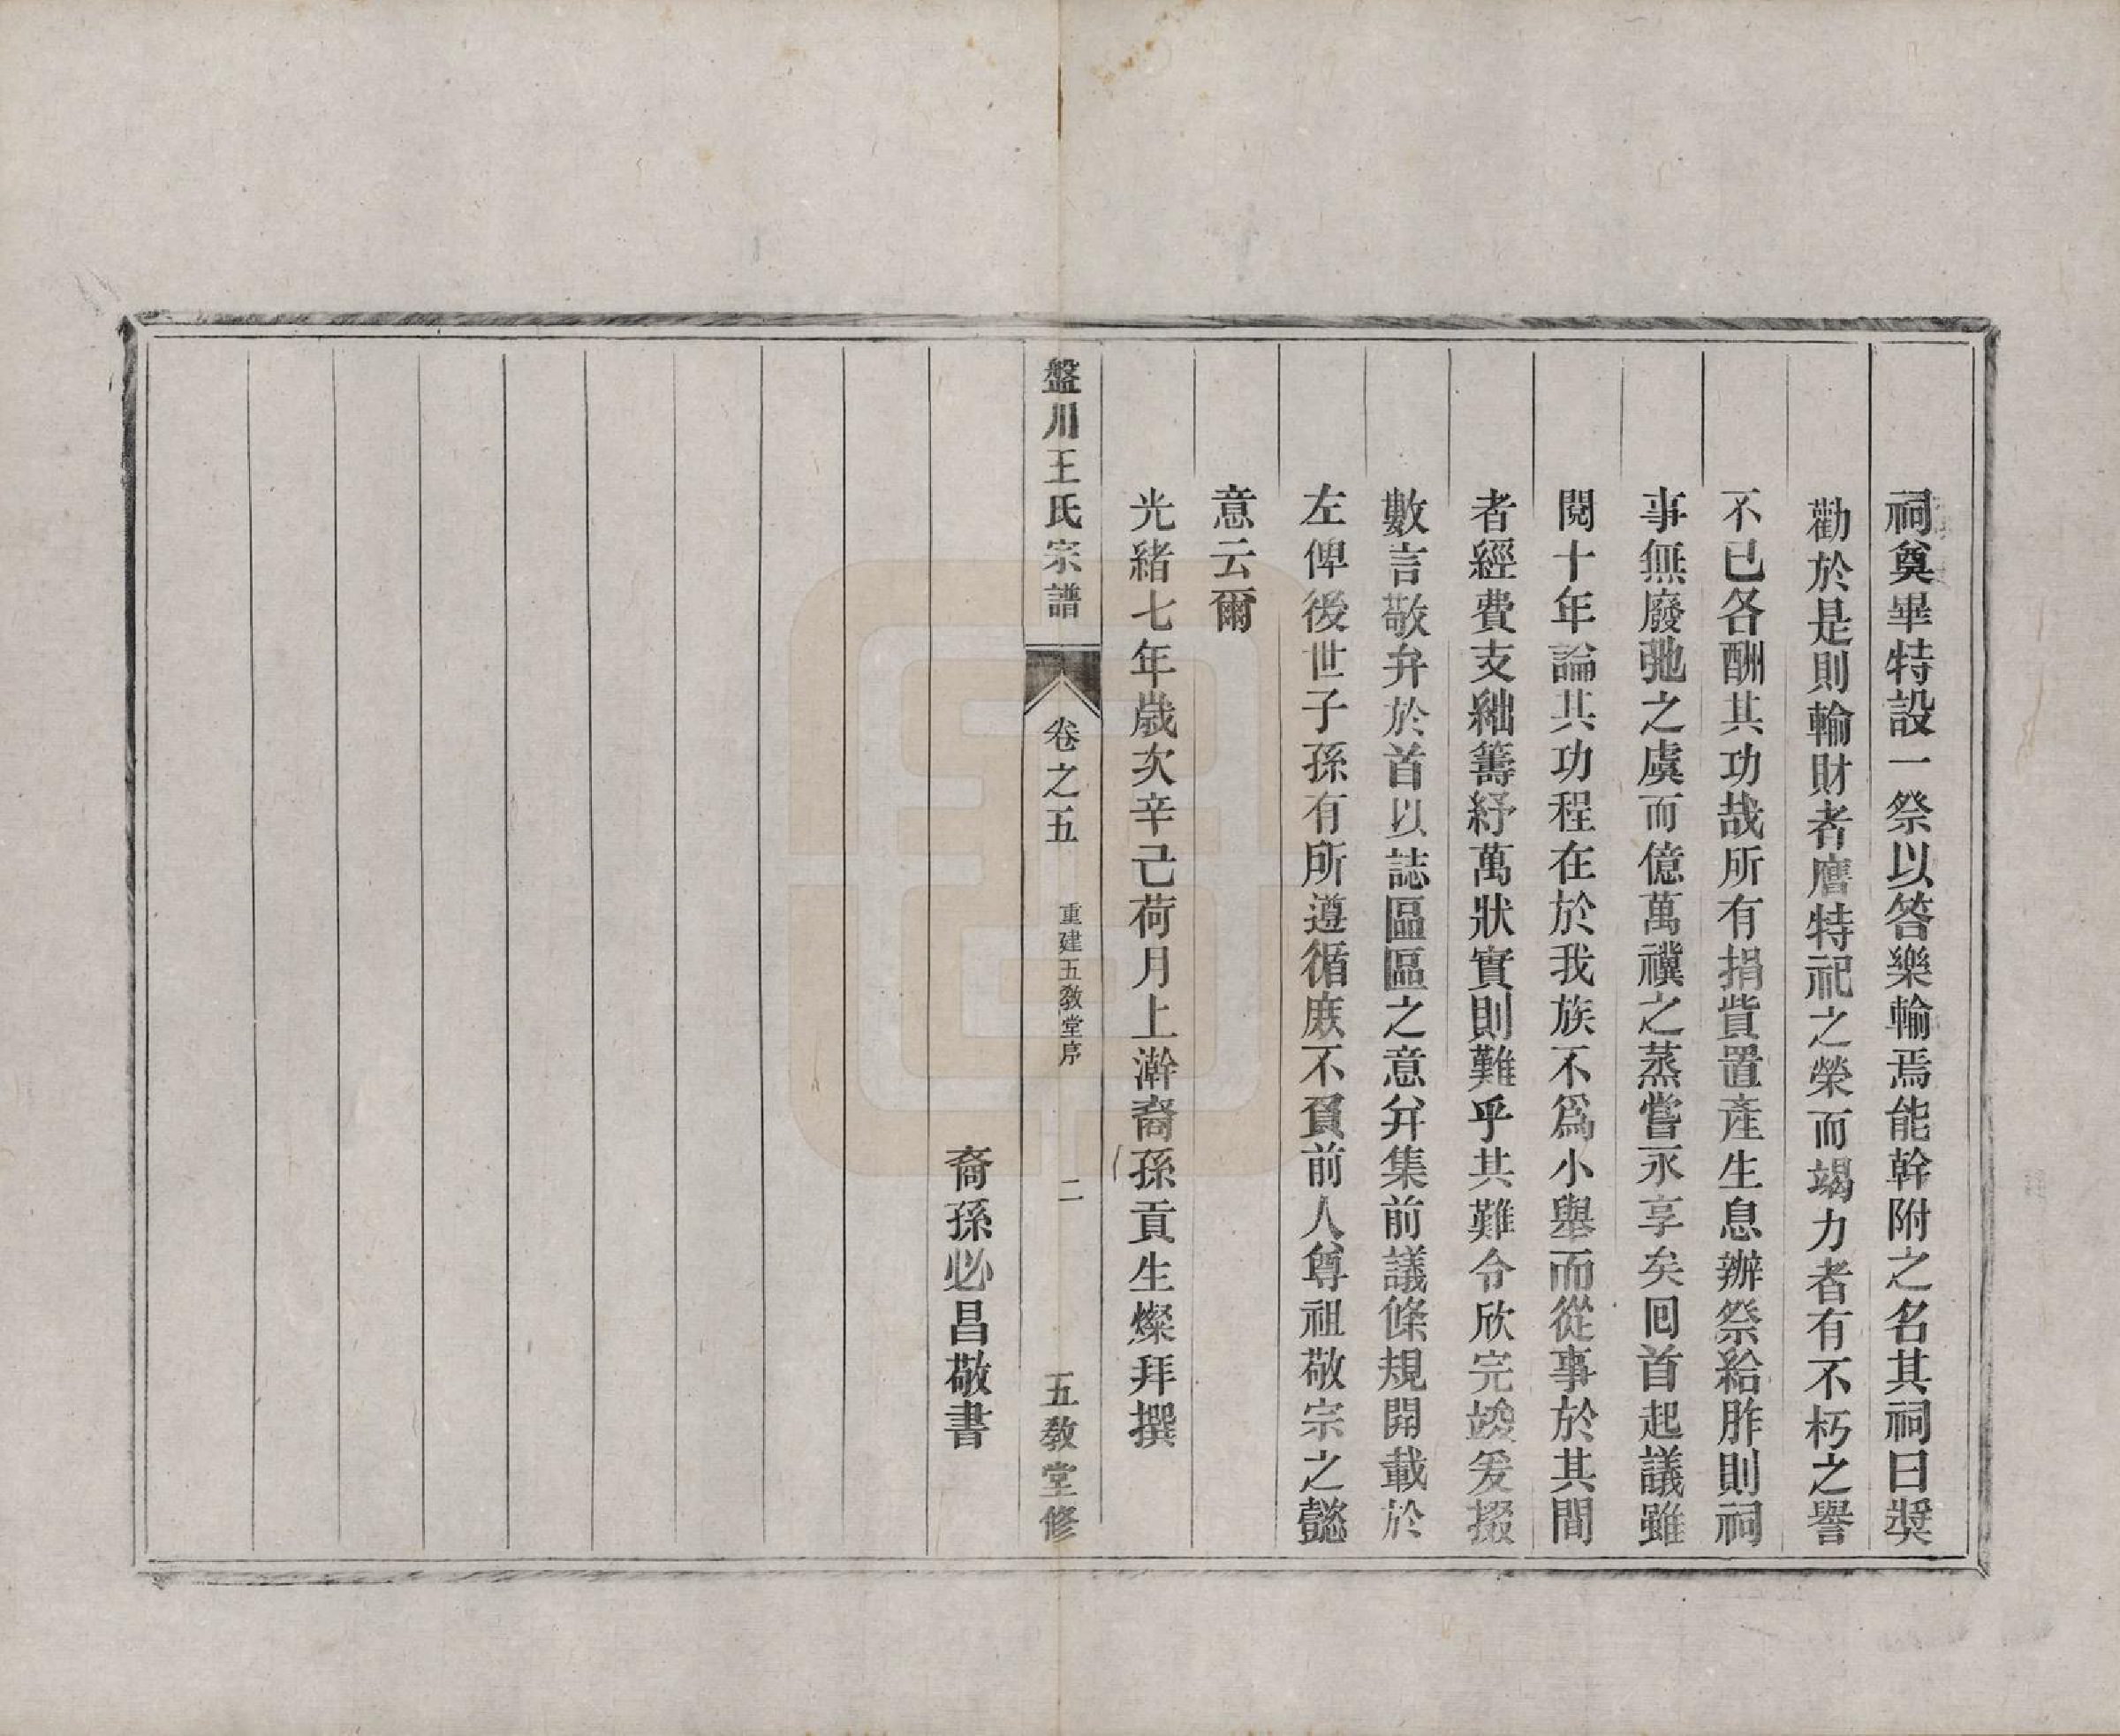 祠奠畢特設一祭以答樂輸焉能幹附之名其祠曰奬
勸於是則輸財者膺特祀之榮而竭力者有不朽之譽
不已各酬其功哉所有捐貲置產生息辦祭給胙則祠
事無廢弛之虞而億萬禩之蒸嘗永享矣囘首起議雖
閱十年論其功程在於我族不爲小舉而從事於其間
者經費支絀籌紓萬狀實則難乎其難令欣完竣爰掇
數言敬弁於首以誌區區之意幷集前議條規開載於
左俾後世子孫有所遵循庶不負前人尊祖敬宗之懿
意云爾
光緒七年歲次辛己荷月上澣裔孫貢生燦拜撰
盤川王氏宗譜
卷之五
重建五敎堂序
二
五敎堂修
裔孫必昌敬書